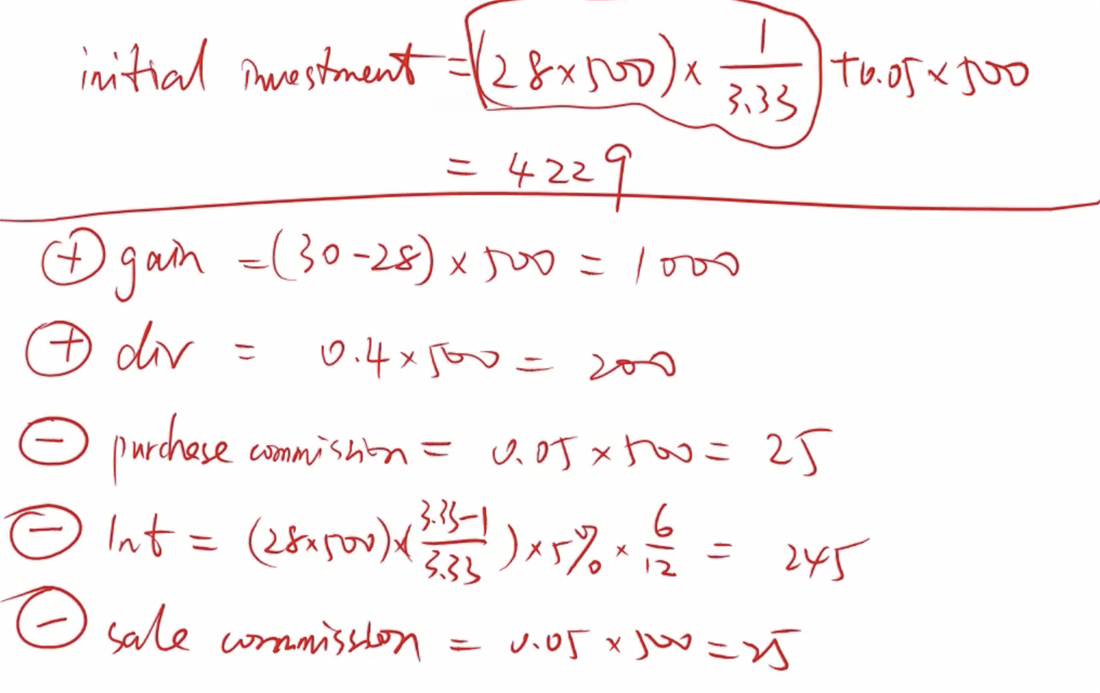 initial investment = (28×500) × 1/3.33 + 0.05 × 500
= 4229
⊕ gain = (30-28) × 500 = 1000
⊕ div = 0.4 × 500 = 200
⊖ purchase commission = 0.05 × 500 = 25
⊖ Int = (28×500)×(3.33-1/3.33) × 5% × 6/12 = 245
⊖ sale commission = 0.05 × 500 = 25